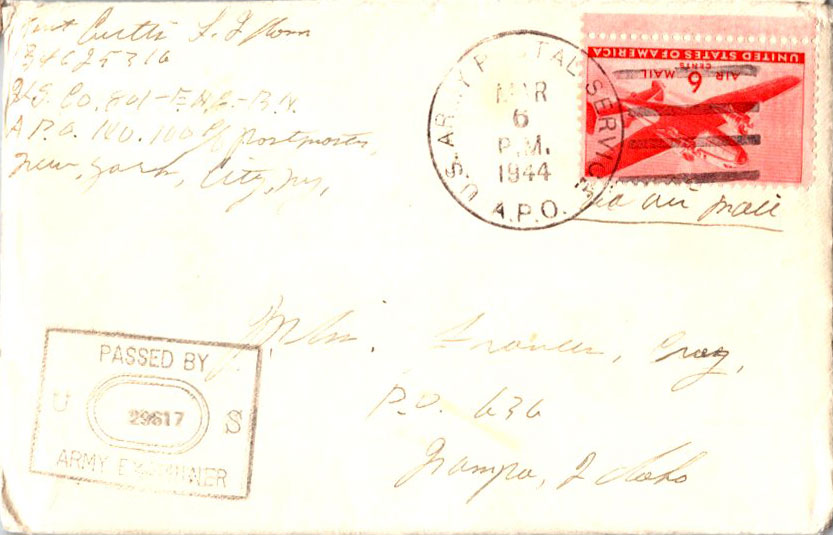 Curtis L.
34625316
Co. 801-ENG-B.N.
A.P.O. NO. 100 % postmaster,
New, york, City, ny,
U.S. ARMY POSTAL SERVICE
MAR
6
P.M.
1944
A.P.O.
UNITED STATES OF AMERICA
6 CENTS
AIR MAIL
via air mail
Frances, Craig,
P.O. 636
Nampa, Idaho
PASSED BY
U 29617 S
ARMY EXAMINER